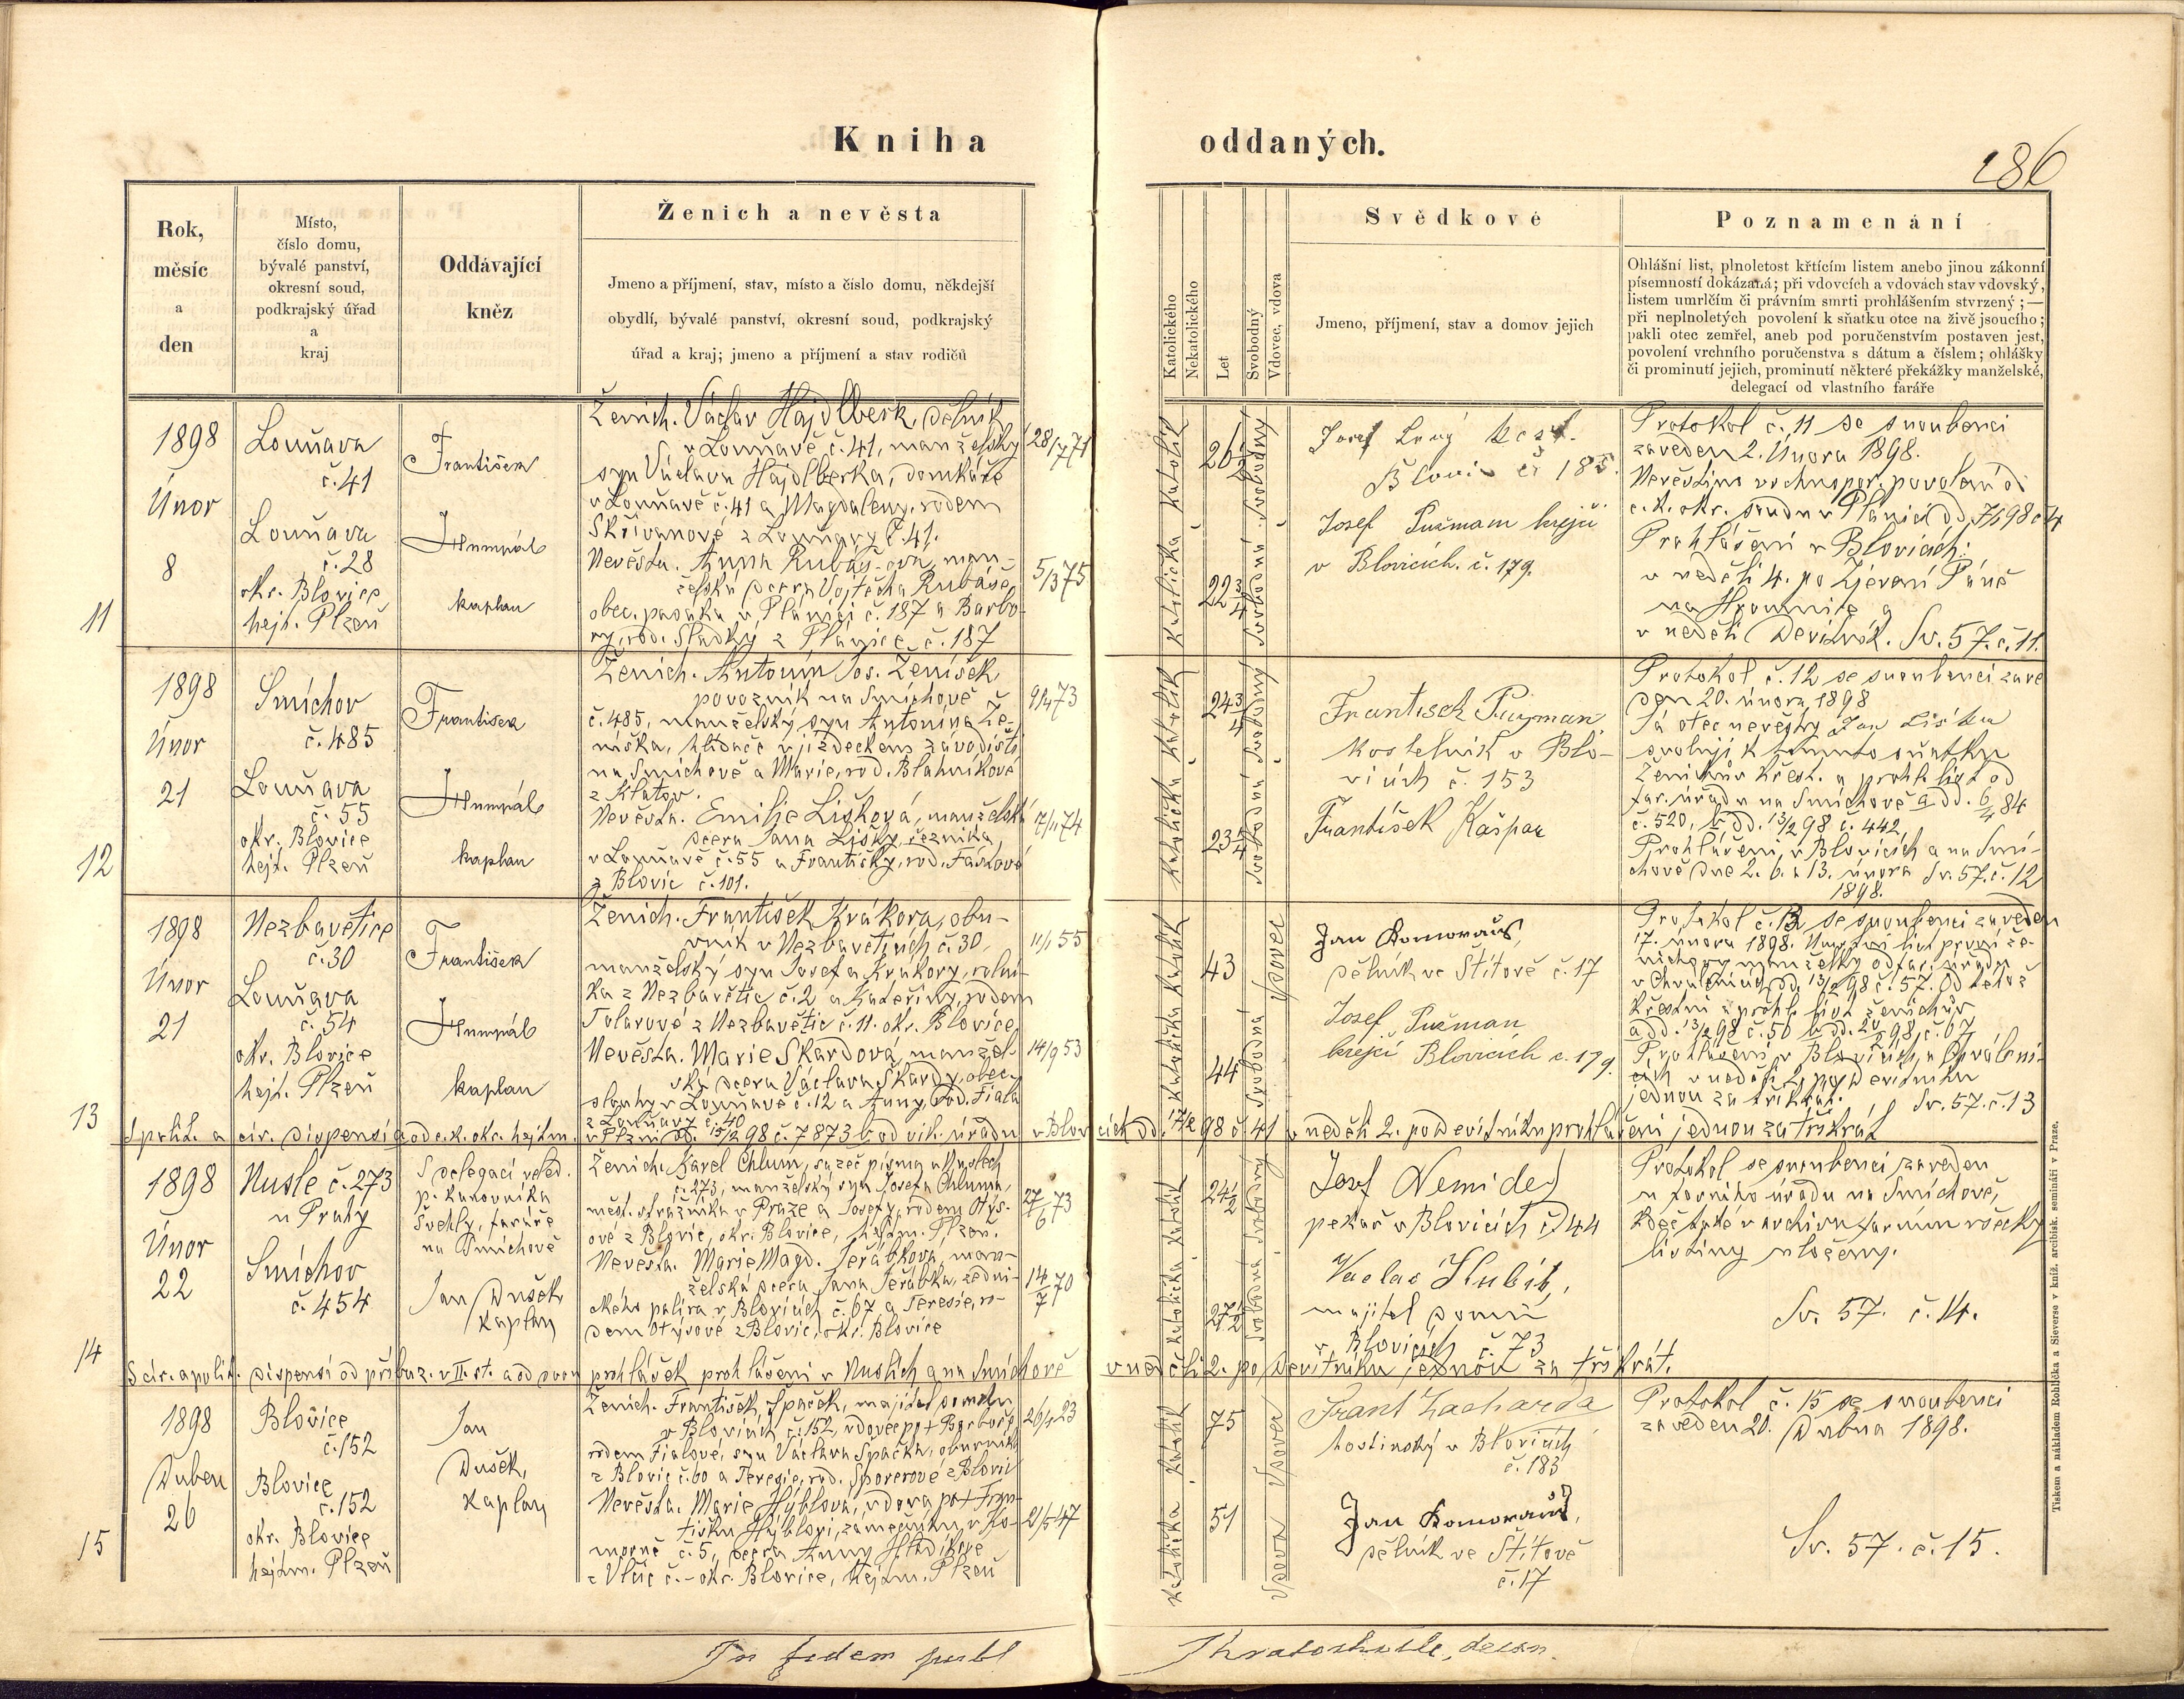 Kniha oddaných.
186
Rok,
měsíc
a
den
Místo,
číslo domu,
bývalé panství,
okresní soud,
podkrajský úřad
a
kraj
Oddávající
kněz
Ženich a nevěsta
Jmeno a příjmení, stav, místo a číslo domu, někdejší
obydlí, bývalé panství, okresní soud, podkrajský
úřad a kraj; jmeno a příjmení a stav rodičů
Katolického
Nekatolického
Let
Svobodný
Vdovec, vdova
Svědkové
Jmeno, příjmení, stav a domov jejich
Poznamenání
Ohlášní list, plnoletost křtícím listem anebo jinou zákonní
písemností dokázaná; při vdovcích a vdovách stav vdovský,
listem umrlčím či právním smrti prohlášením stvrzený; —
při neplnoletých povolení k sňatku otce na živě jsoucího;
pakli otec zemřel, aneb pod poručenstvím postaven jest,
povolení vrchního poručenstva s dátum a číslem; ohlášky
či prominutí jejich, prominutí některé překážky manželské,
delegací od vlastního faráře
11
1898
Únor
8
Louňava
č. 41
Louňava
č. 28
okr. Blovice
hejt. Plzeň
František
Humpál
kaplan
Ženich. Václav Hajdlberk, dělník
v Louňavě č. 41, manželský
syn Václava Hajdlberka, domkáře
v Louňavě č. 41 a Magdaleny, rodem
Skřivanové z Louňavy č. 41.
28/7 71
Nevěsta. Anna Rubášova, man-
želská dcera Vojtěcha Rubáše,
obec. pasáka v Plánici č. 187 a Barbo-
ry, rod. Sladky z Plánice č. 187
5/3 75
Katolík
26 1/2
svobodný
Katolička
22 3/4
svobodná
Josef
Blovic č 185.
Josef Pužman krejčí
v Blovicích. č. 179.
Protokol č. 11 se snoubenci
zaveden 2. Února 1898.
Nevěstino vrchnopor. povolení od
c. k. okr. soudu v Plánici dd. 7/1 98 č 4
Prohlášení v Blovicích:
v neděli 4. po Zjevení Páně
na Hromnice a
v neděli Devítník. Sv. 57. č. 11.
12
1898
Únor
21
Smíchov
č. 485
Louňava
č. 55
okr. Blovice
hejt. Plzeň
František
Humpál
kaplan
Ženich. Antonín Jos. Ženíšek
povozník na Smíchově
č. 485, manželský syn Antonína Že-
níška, hlídače v jízdeckém závodišti
na Smíchově a Marie, rod. Blahníkové
z Klatov.
9/4 73
Nevěsta. Emilie Lišková, manželská
dcera Jana Lišky, řezníka
v Louňavě č. 55 a Františky, rod. Faškové
z Blovic č. 101.
17/11 74
Katolík
24 3/4
svobodný
Katolička
23 1/4
svobodná
František Pužman
kostelník v Blo-
vicích č. 153
František Kašpar
Protokol č. 12 se snoubenci zave
den 20. února 1898
Já otec nevěsty Jan Liška
svoluji k tomuto sňatku
Ženichův křest. a prohl. list od
far. úřadu na Smíchově a dd. 6/4 84
č. 520, b dd. 13/2 98 č. 442,
Prohlášení v Blovicích a na Smí-
chově dne 2. 6. a 13. února Sv. 57. č. 12
1898.
13
1898
Únor
21
Nezbavětice
č. 30
Louňava
č. 54
okr. Blovice
hejt. Plzeň
František
Humpál
kaplan
Ženich. František Krákora, obu-
vník v Nezbavěticích č. 30,
manželský syn Josefa Krákory, rolní-
ka z Nezbavětic č. 2 a Kateřiny, rodem
Tolarové z Nezbavětic č. 11. okr. Blovice
11/1 55
Nevěsta. Marie Škardová, manžel-
ská dcera Václava Škardy, obec.
slouhy v Louňavě č. 12 a Anny, rod. Fiala
z Louňavy č. 40
14/9 53
Katolík
43
vdovec
Katolička
44
svobodná
Jan Komoraus,
dělník ve Štítově č. 17
Josef Pužman
krejčí Blovicích č. 179.
Protokol č. 13 se snoubenci zaveden
17. února 1898. Úmrtní list první že-
nichovy manželky od far. úřadu
v Chválenicích dd. 13/2 98 č. 57. Od téhož
křestní a prohl. list ženichův
a dd. 13/2 98 č. 50 b dd. 20/2 98, č. 67
Prohlášení v Blovicích a Chváleni-
cích v neděli 2. po Devítníku
jednou za třikrát. Sv. 57. č. 13
S polit. a cír. dispensí a od c. k. okr. hejtm. v Plzni dd. 15/2 98 č. 7873 b od vik. úřadu v Blovicích dd. 17/2 98 č 41 v neděli 2. po Devítníku prohlášeni jednou za třikrát
14
1898
Únor
22
Nusle č. 273
u Prahy
Smíchov
č. 454
S delegací veled.
p. kanovníka
Švehly, faráře
na Smíchově
Jan Dušek
kaplan
Ženich. Karel Chlum, sazeč písma v Nuslech
č. 273, manželský syn Josefa Chluma,
měst. strážníka v Praze a Josefy, rodem Otýs-
ové z Blovic, okr. Blovice, hejtm. Plzeň.
27/6 73
Nevěsta. Marie Magd. Jeřábkova, man-
želská dcera Jana Jeřábka, zedni-
ckého palíra v Blovicích č. 67 a Teresie, ro-
dem Otýsové z Blovic, okr. Blovice
14/7 70
Katolík
24 1/2
svobodný
Katolička
27 1/2
svobodná
Josef Nemide
pekař v Blovicích č 44
Vaclav Hlubík,
majitel domu
v Blovicích č. 73
Protokol se snoubenci zaveden
u farního úřadu na Smíchově,
kdež také v archivu farním všecky
listiny uloženy.
Sv. 57. č. 14.
S cír. a polit. dispensí od příbuz. v II. st. a od dvou prohlášek prohlášeni v Nuslích a na Smíchově v neděli 2. po Devítníku jednou za třikrát.
15
1898
Duben
26
Blovice
č. 152
Blovice
č. 152
okr. Blovice
hejtm. Plzeň
Jan
Dušek,
kaplan
Ženich. František Špaček, majitel domku
v Blovicích č. 152, vdovec po + Barboře,
rodem Fialové, syn Václava Špačka, obuvníka
z Blovic č. 60 a Teresie, rod. Sporerové z Blovic
26/1 23
Nevěsta. Marie Hýblová, vdova po + Fran-
tišku Hýblovi, zámečníku v Ko-
morně č. 5, dcera Anny Hladíkové
z Vlčic č. - okr. Blovice, hejtm. Plzeň
2/5 47
Katolík
75
vdovec
Katolička
51
vdova
Frant Zacharda
hostinský v Blovicích
č. 183
Jan Komoraus,
dělník ve Štítově
č. 17
Protokol č. 15 se snoubenci
zaveden 20. Dubna 1898.
Sv. 57. č. 15.
In fidem publ
decan.
Tiskem a nákladem Rohlíčka a Sieverse v kníž. arcibisk. semináři v Praze.